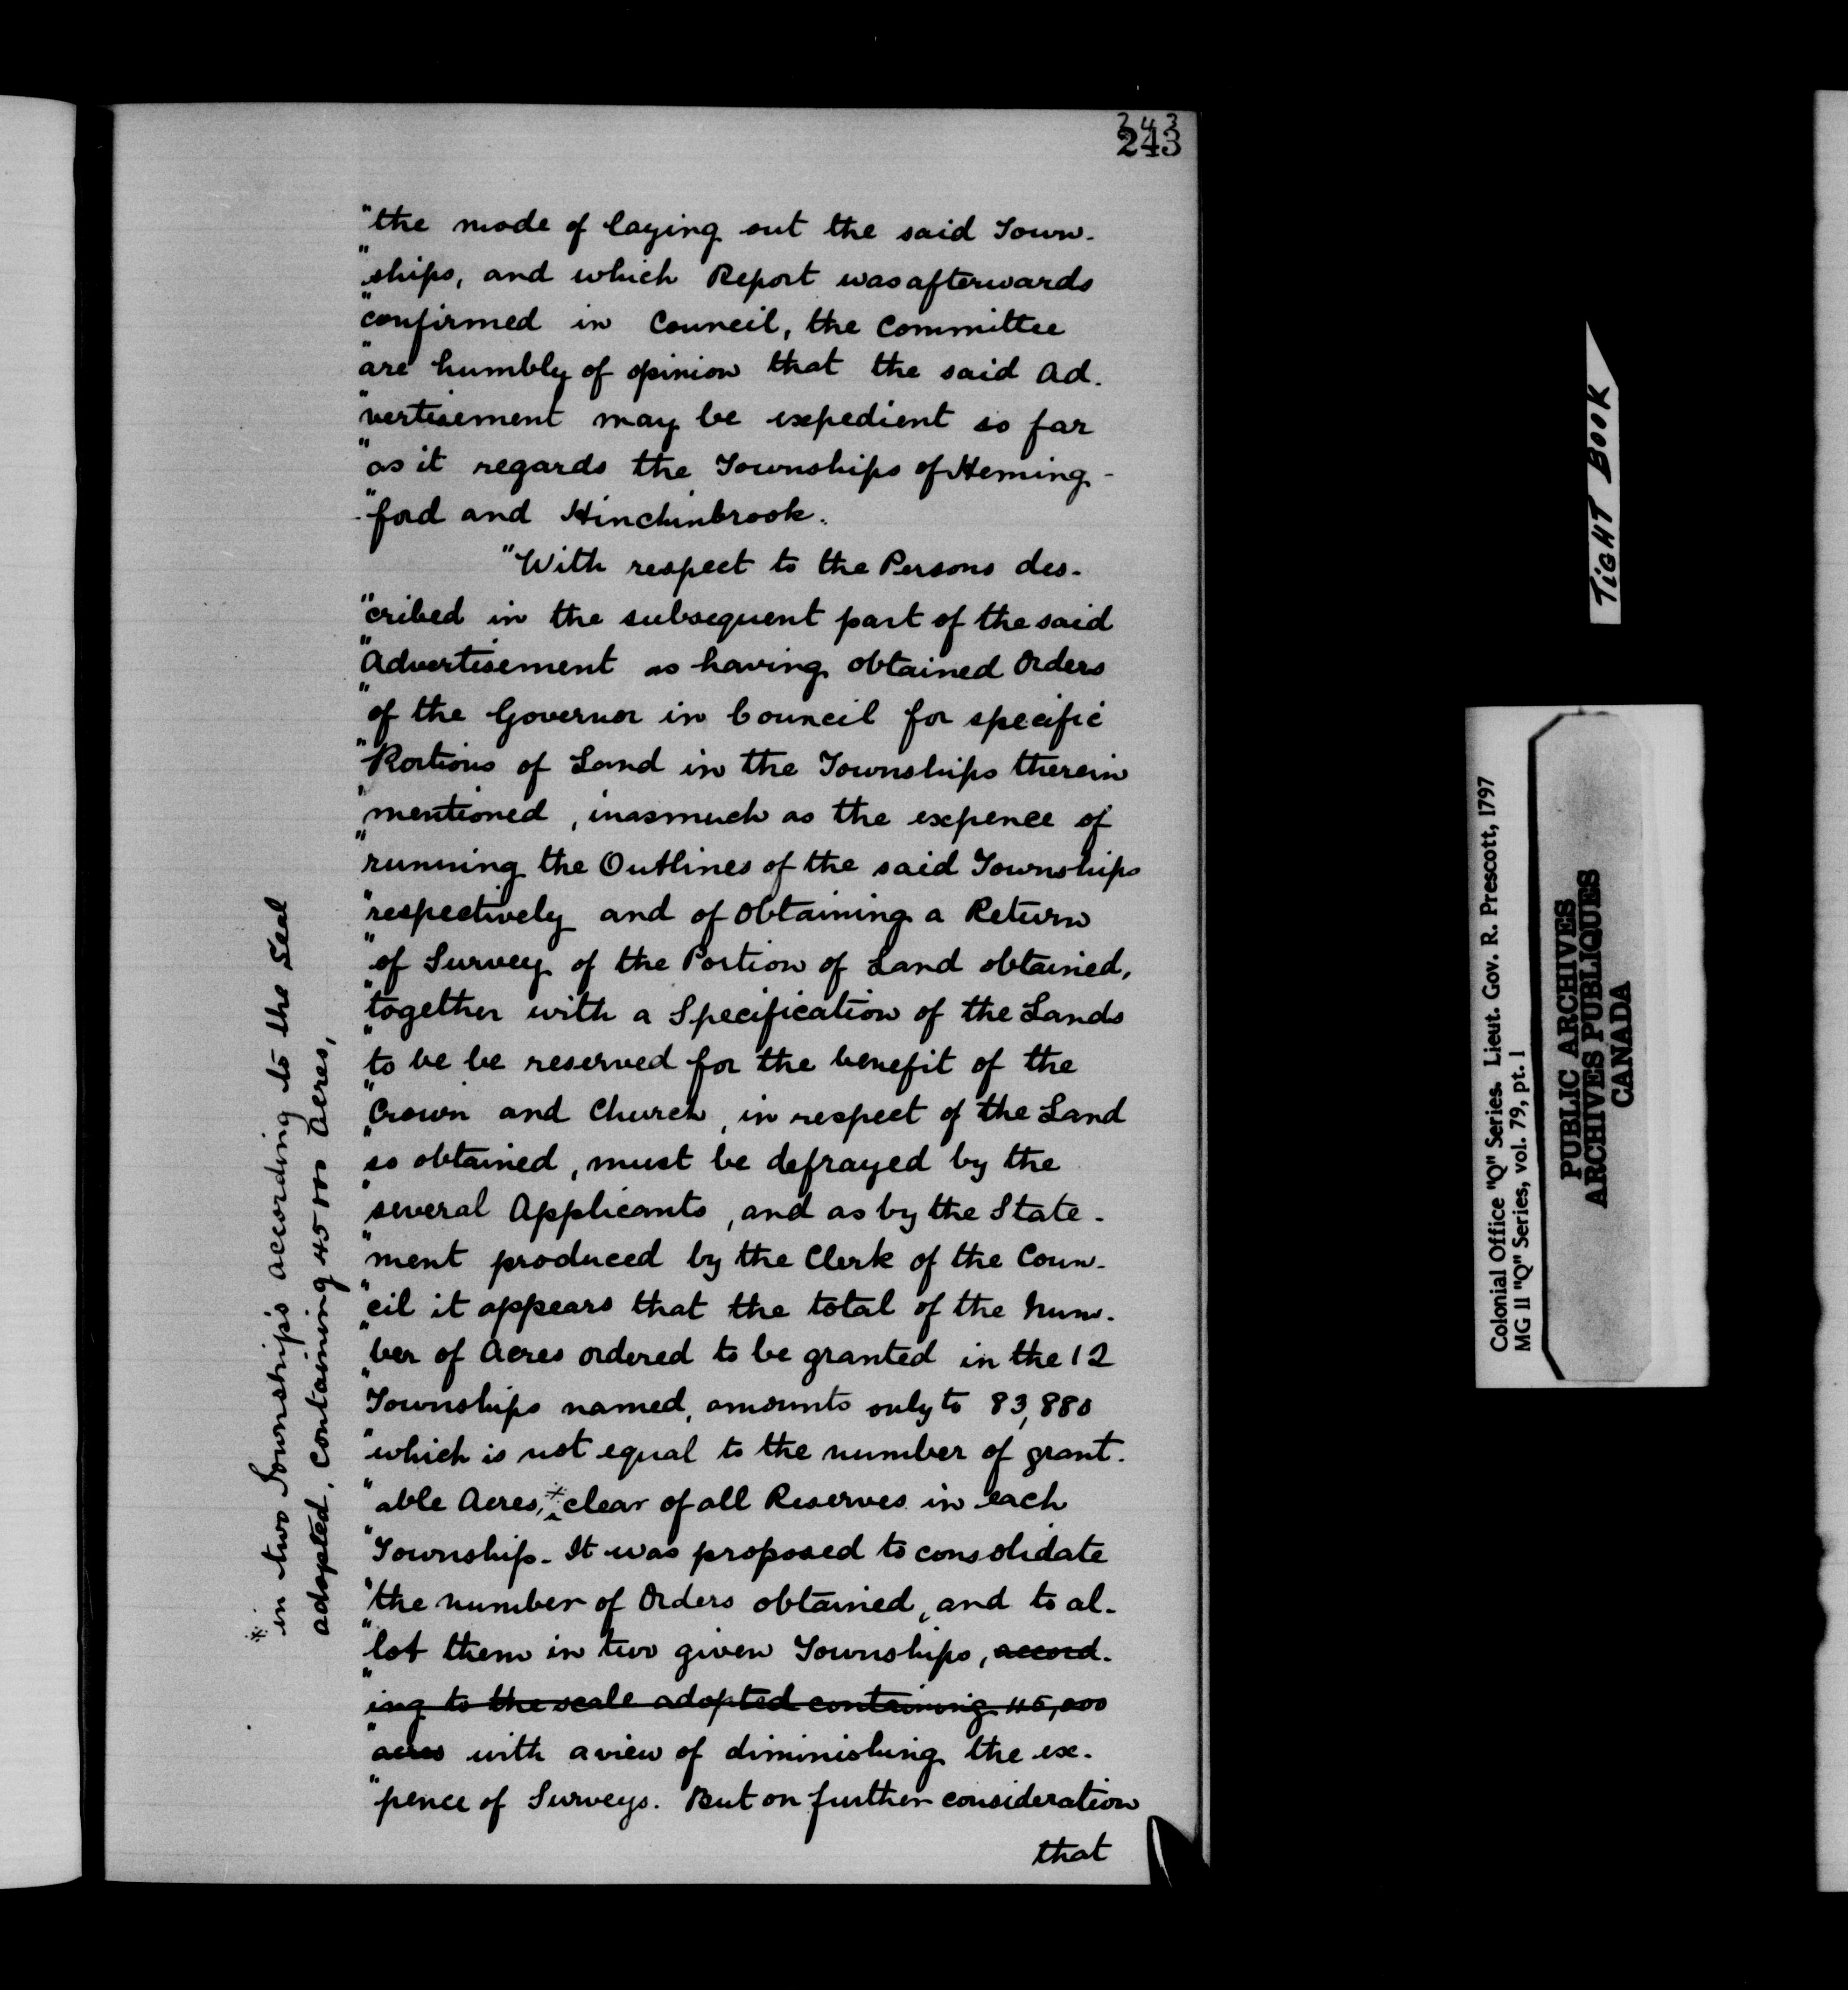 243
243
"the mode of laying out the said Town-
"ships, and which Report was afterwards
"confirmed in Council, the Committee
"are humbly of opinion that the said Ad-
"vertisement may be expedient so far
"as it regards the Townships of Heming-
"ford and Hinchinbrook.
"With respect to the Persons des-
"cribed in the subsequent part of the said
"Advertisement as having obtained Orders
"of the Governor in Council for specific
"Portions of Land in the Townships therein
"mentioned, inasmuch as the expence of
"running the Outlines of the said Townships
"respectively and of obtaining a Return
"of Survey of the Portion of Land obtained,
"together with a Specification of the Lands
"to be be reserved for the benefit of the
"Crown and Church, in respect of the Land
"so obtained, must be defrayed by the
"several Applicants, and as by the State-
"ment produced by the Clerk of the Coun-
"cil it appears that the total of the Num-
"ber of Acres ordered to be granted in the 12
"Townships named, amounts only to 83,880
"which is not equal to the number of grant-
"able Acres,* clear of all Reserves in each
"Township. It was proposed to consolidate
"the number of Orders obtained, and to al-
"lot them in two given Townships, accord-
"ing to the scale adopted containing 45,000
"acres with a view of diminishing the ex-
"pence of Surveys. But on further consideration
that
* in two Township's according to the Seal
adopted, containing 45000 Acres,
TIGHT BOOK
Colonial Office "Q" Series. Lieut. Gov. R. Prescott, 1797
MG 11 "Q" Series, vol. 79, pt. 1
PUBLIC ARCHIVES
ARCHIVES PUBLIQUES
CANADA